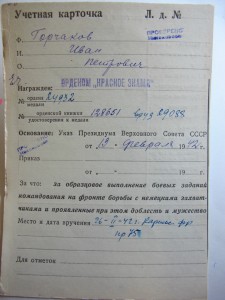 Учетная карточка Л. д. №
Ф. Горчаков
И. Иван
О. Петрович
Награжден:
ОРДЕНОМ „КРАСНОЕ ЗНАМЯ"
№ ордена 24932
№ орденской книжки 138551
рассмотрено в неделю
Основание: Указ Президиума Верховного Совета СССР
от „19" февраля 1942 г.
Приказ
от „ " 19 г.
За что: за образцовое выполнение боевых заданий
командования на фронте борьбы с немецкими захват-
чиками и проявленные при этом доблесть и мужество
Место и дата вручения 26-II-42г.
Для отметок